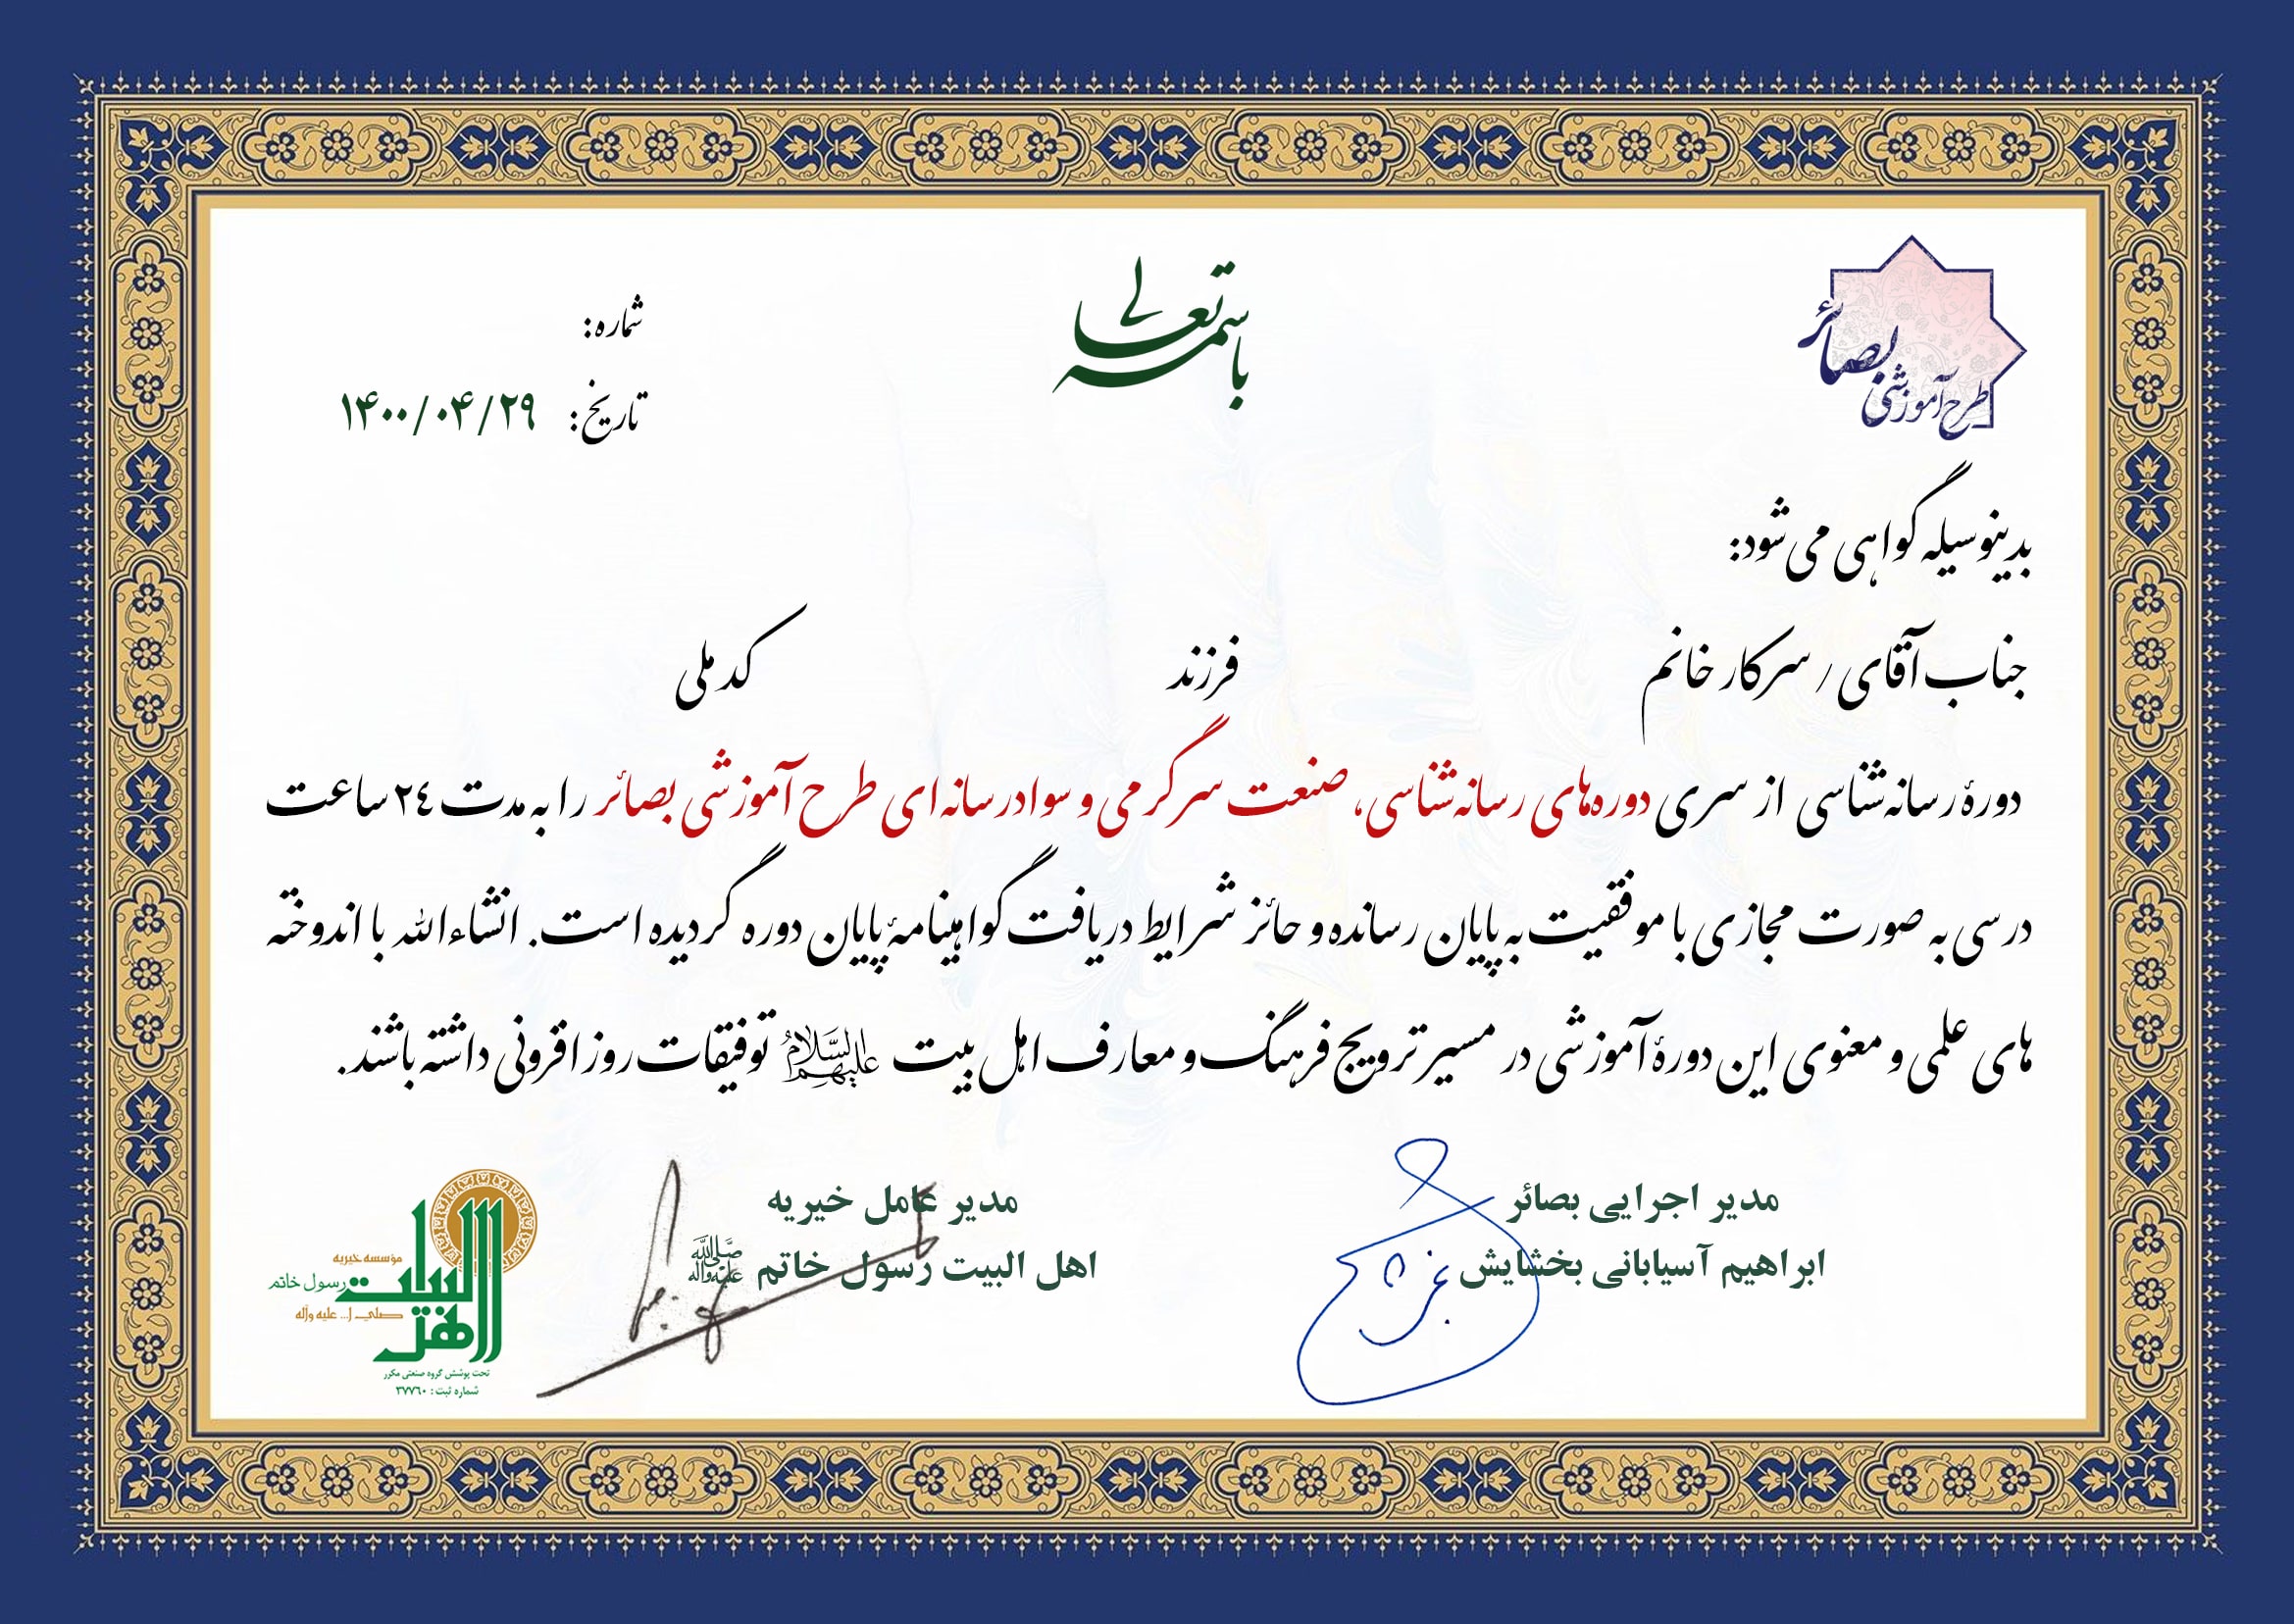 باسمه تعالی
طرح آموزشی بصائر
شماره:
تاریخ: ۱۴۰۰/۰۴/۲۹
بدینوسیله گواهی می شود:
جناب آقای / سرکار خانم فرزند کد ملی
دورۀ رسانه‌شناسی از سری دوره‌های رسانه‌شناسی، صنعت سرگرمی و سواد رسانه ای طرح آموزشی بصائر را به مدت ۲۴ ساعت
درسی به صورت مجازی با موفقیت به پایان رسانده و حائز شرایط دریافت گواهینامۀ پایان دوره گردیده است. انشاءالله با اندوخته
های علمی و معنوی این دورۀ آموزشی در مسیر ترویج فرهنگ و معارف اهل بیت علیهم السلام توفیقات روز افزونی داشته باشند.
مدیر اجرایی بصائر
ابراهیم آسیابانی بخشایش
مدیر عامل خیریه
اهل البیت رسول خاتم ﷺ
مؤسسه خیریه
اهل البیت
رسول خاتم
صلی ا... علیه وآله
تحت پوشش گروه صنعتی مکرر
شماره ثبت : ۳۷۷۶۰